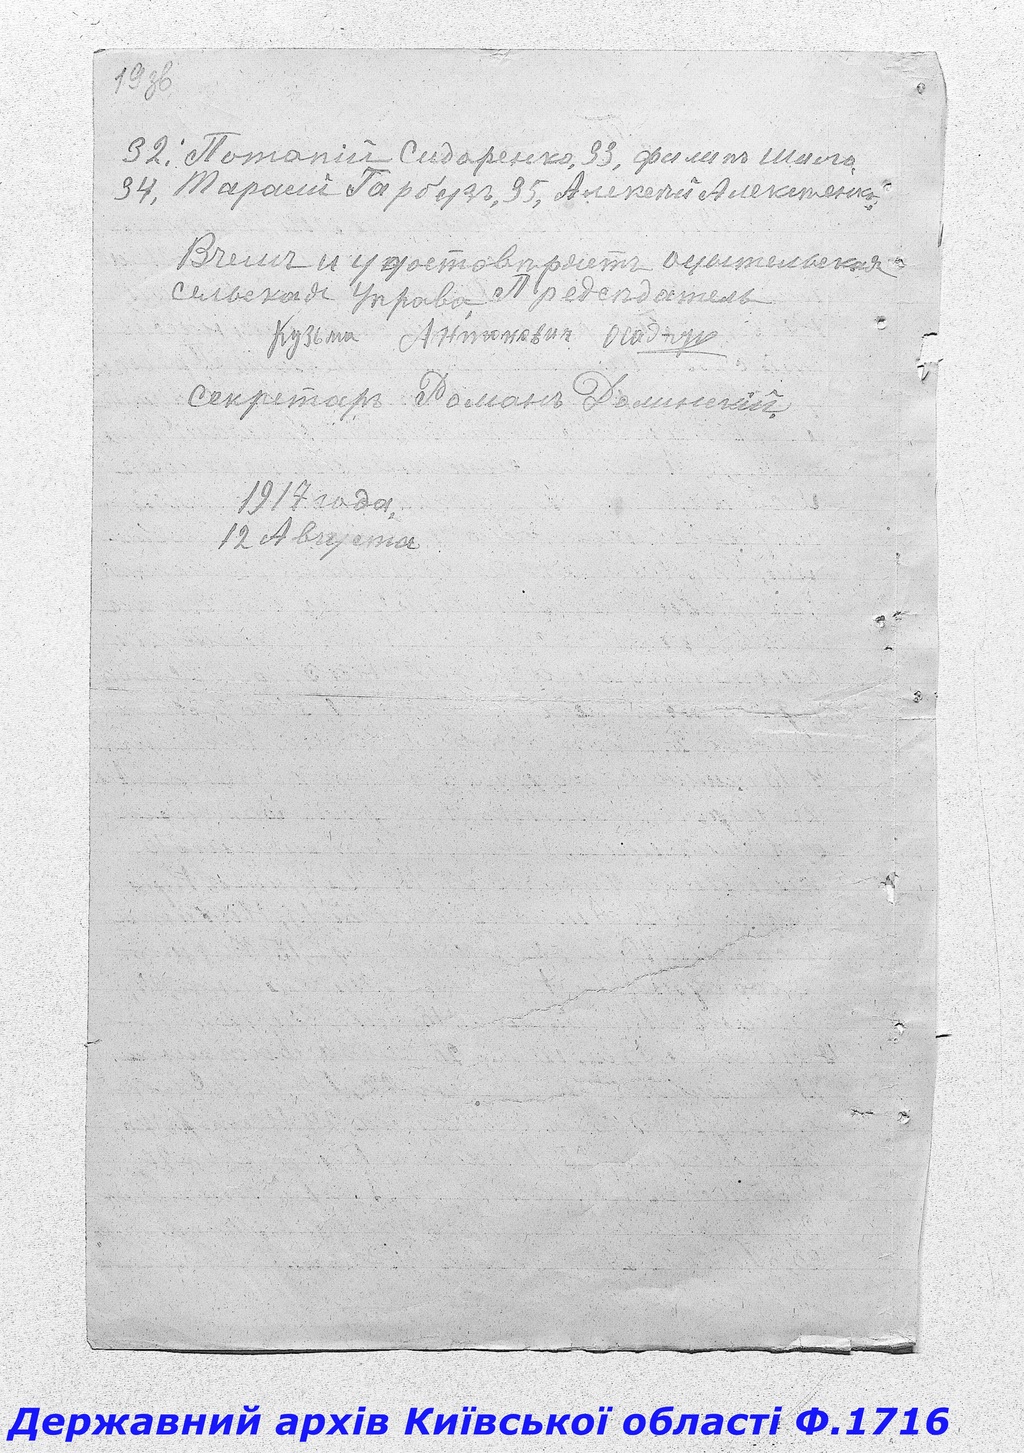 19зв
32. Потапій Сидоренко, 33, филипъ Шило,
34, Тарасій Гарбузъ, 35, Алексѣй Алексѣенко,
Вчемъ и удостовѣряетъ
сельская Управа, Председатель
Кузьма Антонович Осадчук
секретарь Романъ Долинскій.
1917 года,
12 Августа
Державний архів Київської області Ф.1716